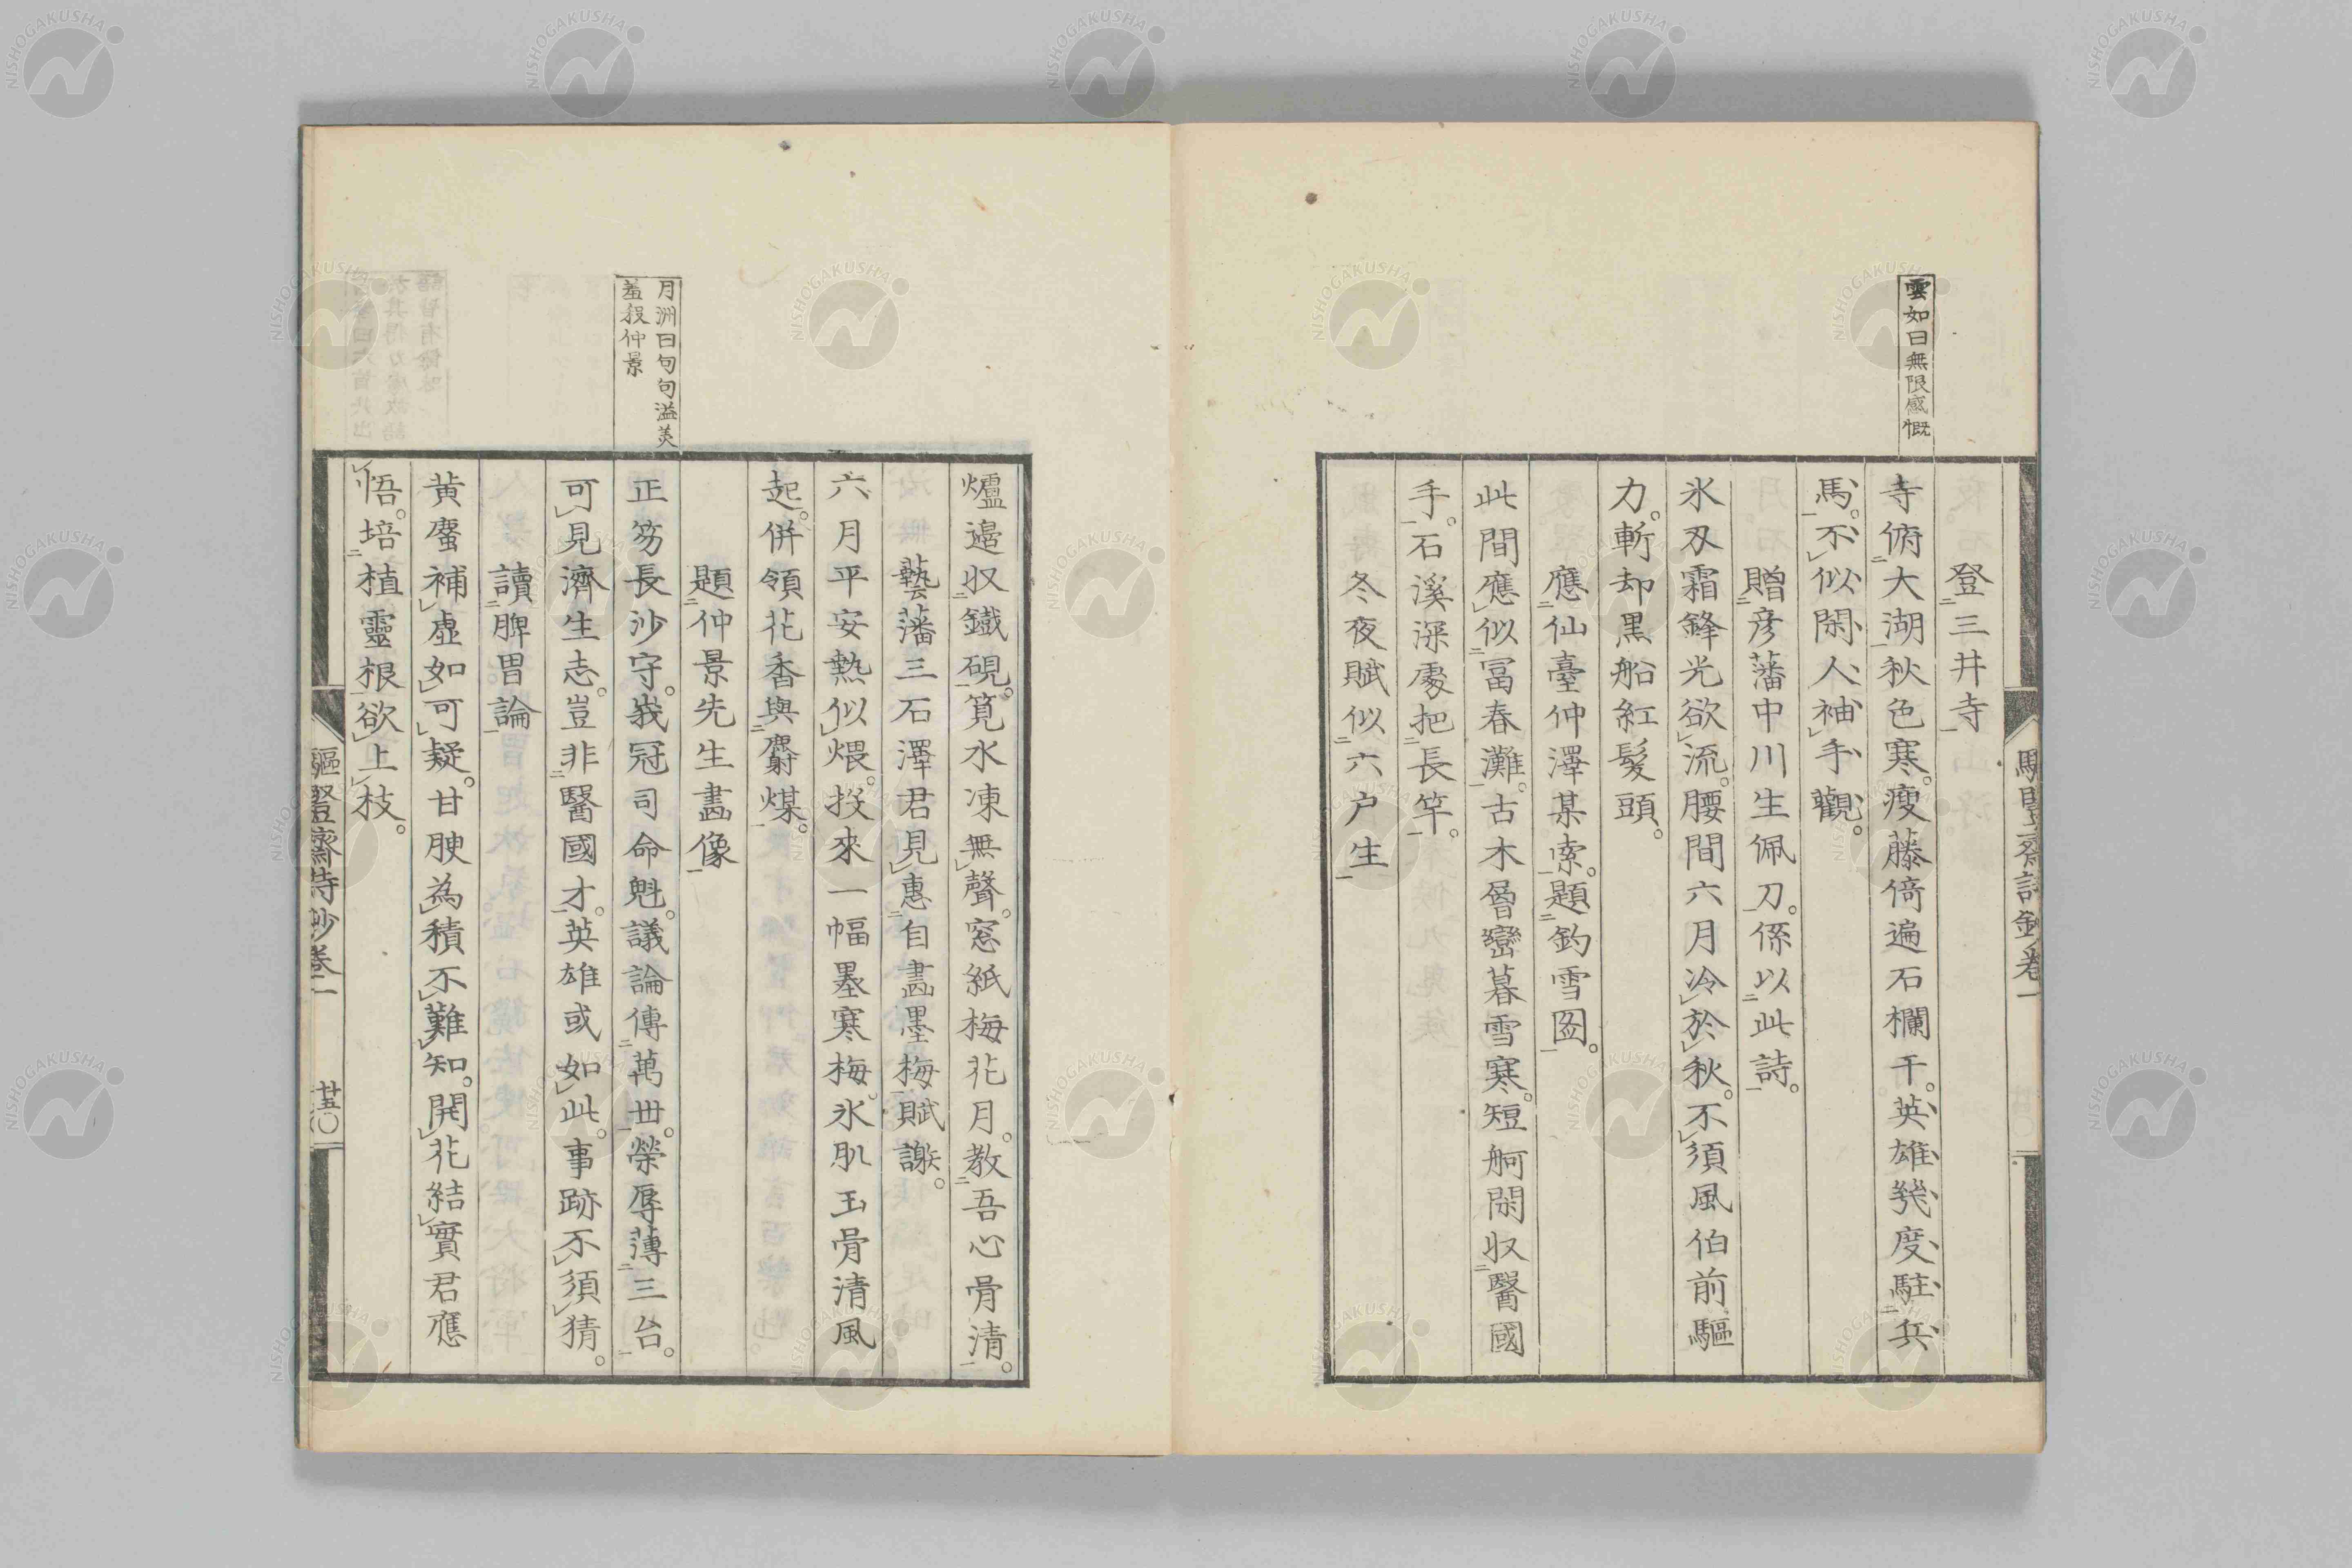 雲如曰無限感慨
登三井寺
寺俯大湖秋色寒。瘦藤倚遍石欄干。英雄幾度駐兵
馬。不似閑人袖手觀。
贈彦藩中川生佩刀。係以此詩。
氷刃霜鋒光欲流。腰間六月冷於秋。不須風伯前驅
力。斬却黒船紅髮頭。
應仙臺仲澤某索。題釣雪圖。
此間應似冨春灘。古木層巒暮雪寒。短舸閑収醫國
手。石溪深處把長竿。
冬夜賦似六户生
驅豎齋詩鈔卷一
爐邉収鐵硯。筧水凍無聲。窓紙梅花月。教吾心骨清。
藝藩三石澤君見惠自畫墨梅賦謝。
六月平安熱似煨。投來一幅墨寒梅。氷肌玉骨清風
起。併領花香與麝煤。
月洲曰句句溢美
羞殺仲景
題仲景先生畫像
正笏長沙守。峩冠司命魁。議論傳萬世。榮辱薄三台。
可見濟生志。豈非醫國才。英雄或如此。事跡不須猜。
讀脾胃論
黄蜜補虛如可疑。甘腴為積不難知。開花結實君應
悟。培植靈根欲上枝。
驅豎齋詩鈔卷一
廿五